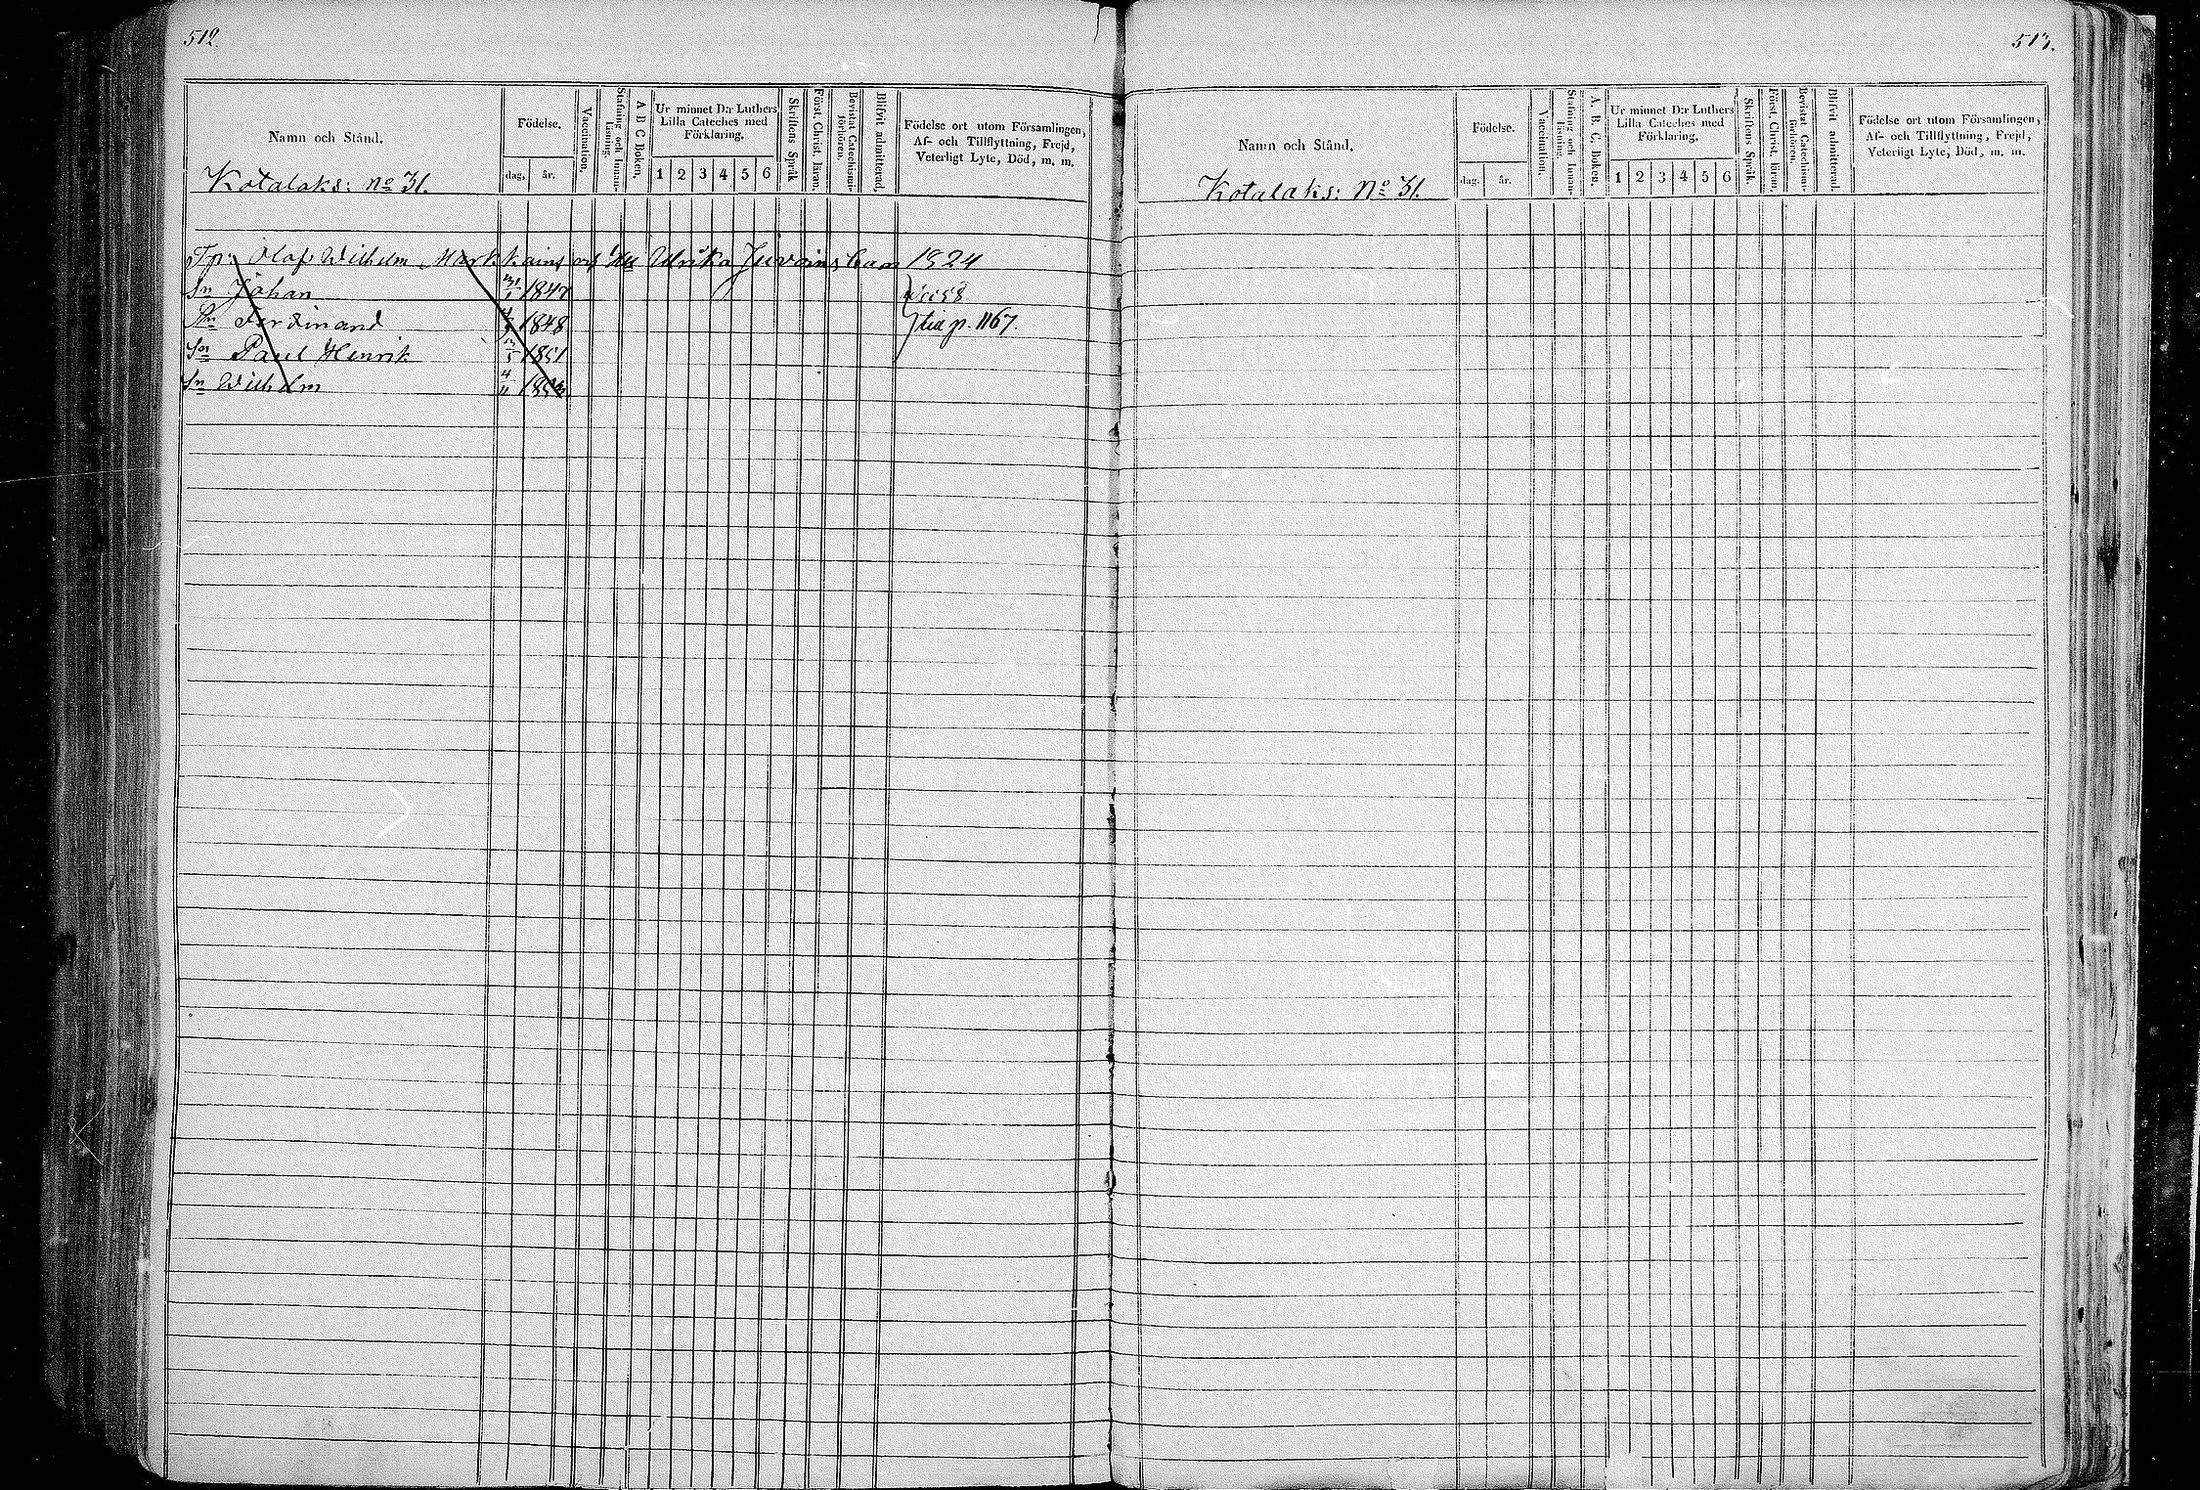 512.
Namn och Stånd.
Kotalaks: No 31.
Födelse.
dag. år.
Vaccination.
Stafning och Innanläsning.
A B C Boken.
Ur minnet D:r Luthers
Lilla Cateches med
Förklaring.
1 2 3 4 5 6
Skriftens Språk
Först. Christ. läran.
Bevistat Catechismi-
förhören.
Blifvit admitterad.
Födelse ort utom Församlingen,
Af- och Tillflyttning, Frejd,
Veterligt Lyte, Död, m. m.
Olof Wilhelm Ulrika barn 1824
Sn Johan 1847
Sn Ferdinand 1848 p. 1167.
Sn Paul Henrik 1851
Sn Wilhelm
513.
Namn och Stånd.
Kotalaks: No 31.
Födelse.
dag. år.
Vaccination.
Stafning och Innanläsning.
A. B. C. Boken.
Ur minnet D:r Luthers
Lilla Cateches med
Förklaring.
1 2 3 4 5 6
Skriftens Språk.
Först. Christ. läran.
Bevistat Catechismi-
förhören.
Blifvit admitterad.
Födelse ort utom Församlingen,
Af- och Tillflyttning, Frejd,
Veterligt Lyte, Död, m. m.